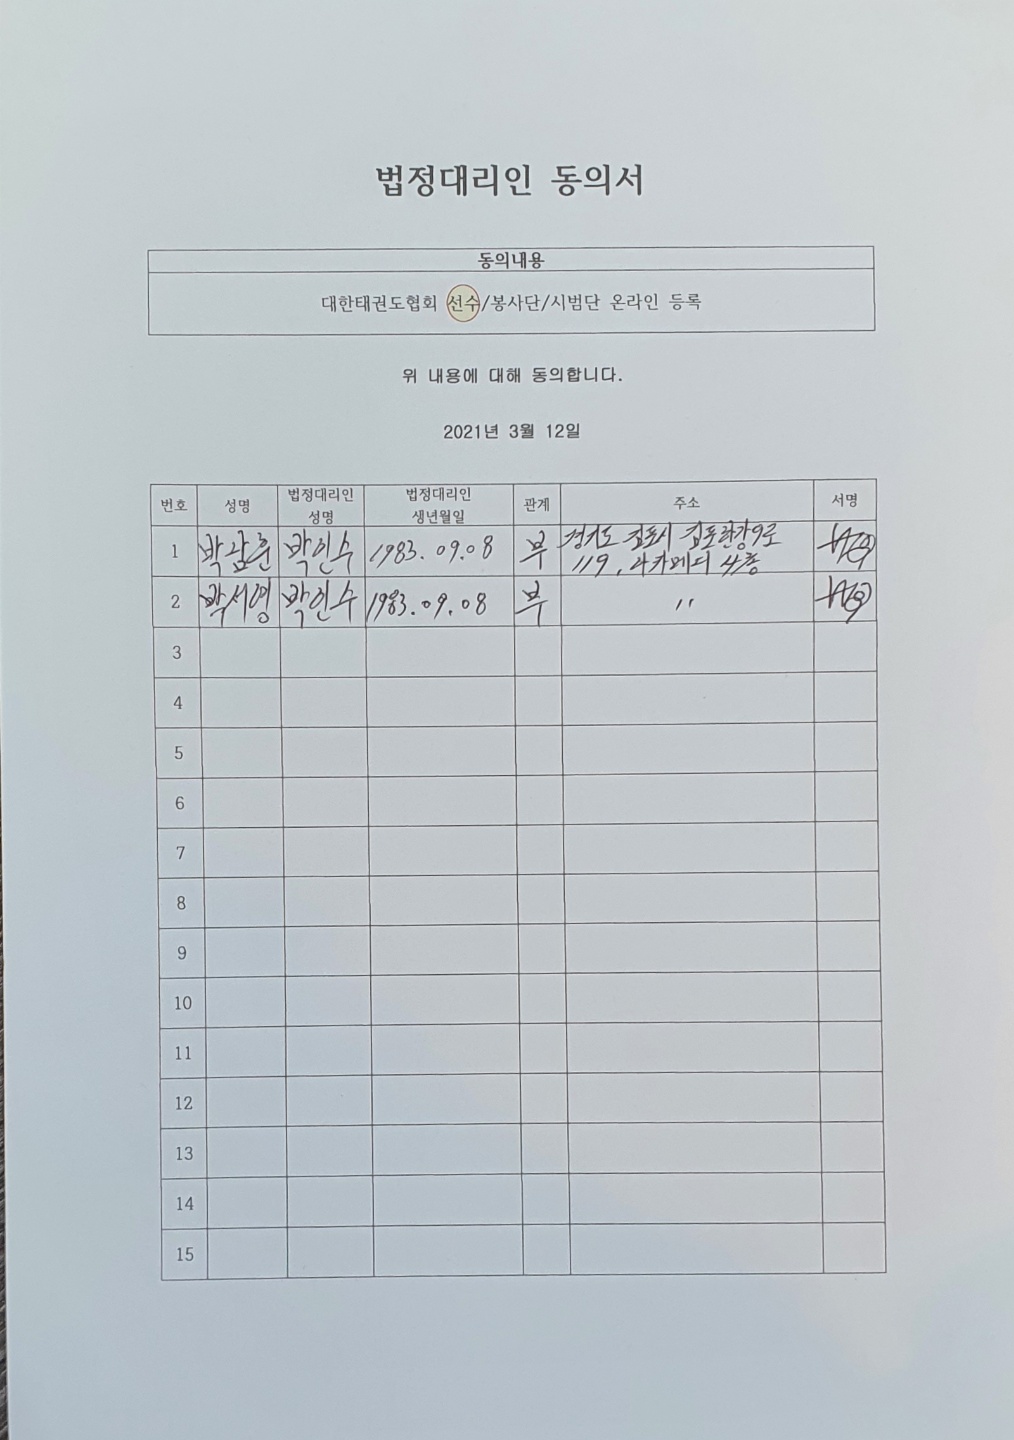 법정대리인 동의서
동의내용
대한태권도협회 선수/봉사단/시범단 온라인 등록
위 내용에 대해 동의합니다.
2021년 3월 12일
번호 성명 법정대리인 성명 법정대리인 생년월일 관계 주소 서명
1 박인수 1983.09.08 부 경기도 김포시 김포한강9로
119, 4층
2 박서영 박인수 1983.09.08 부 〃
3
4
5
6
7
8
9
10
11
12
13
14
15